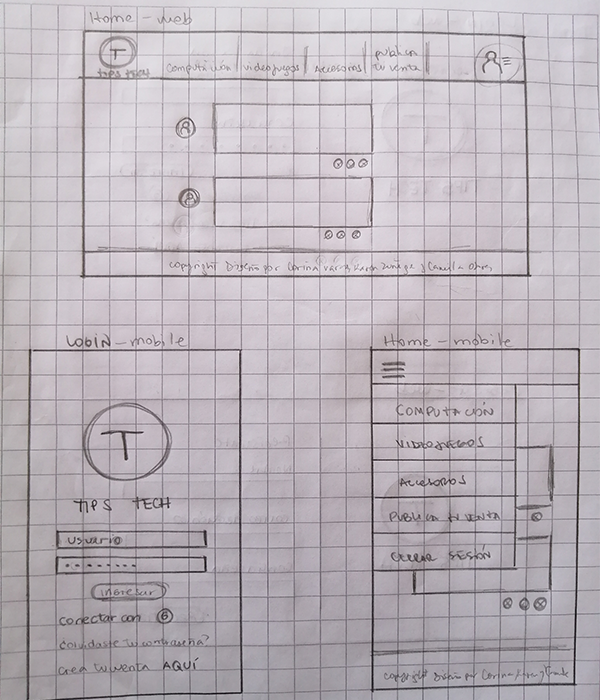 Home - web
T
TIPS TECH
Computación
videojuegos
Accesorios
publica
tu venta
copyright Diseño por Corina Vargas, Karen Zuñiga y Camila
LOGIN - mobile
T
TIPS TECH
usuario
ingresar
conectar con G
olvidaste tu contraseña?
crea tu cuenta AQUÍ
Home - mobile
COMPUTACIÓN
VIDEOJUEGOS
ACCESORIOS
PUBLICA TU VENTA
CERRAR SESIÓN
copyright Diseño por Corina